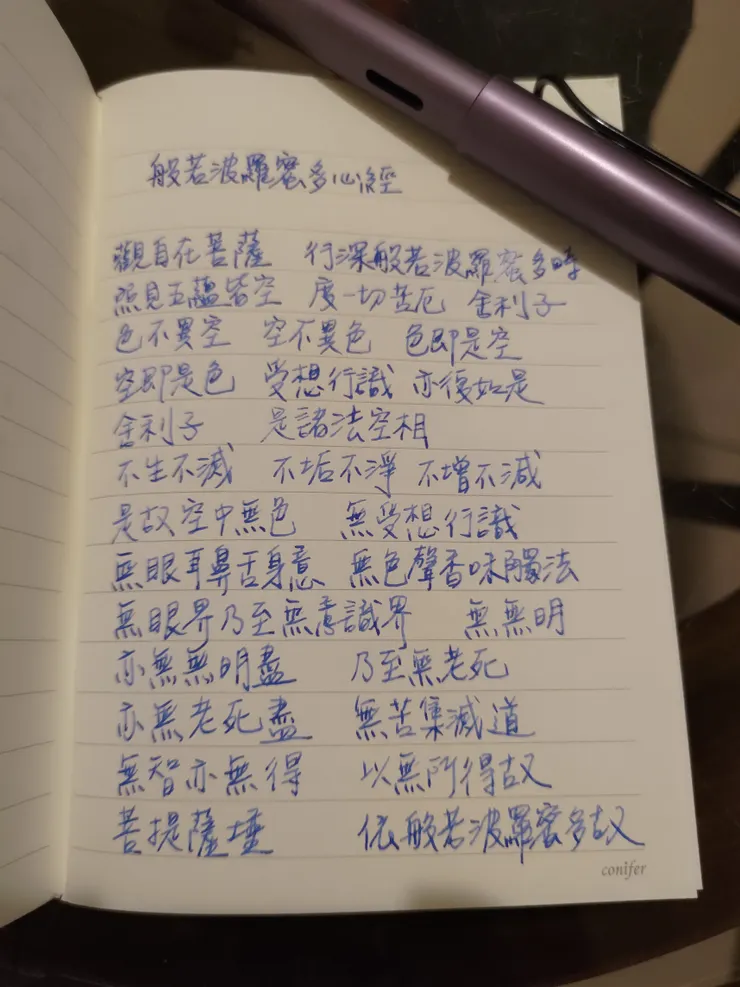 般若波羅蜜多心經
觀自在菩薩 行深般若波羅蜜多時
照見五蘊皆空 度一切苦厄 舍利子
色不異空 空不異色 色即是空
空即是色 受想行識 亦復如是
舍利子 是諸法空相
不生不滅 不垢不淨 不增不減
是故空中無色 無受想行識
無眼耳鼻舌身意 無色聲香味觸法
無眼界乃至無意識界 無無明
亦無無明盡 乃至無老死
亦無老死盡 無苦集滅道
無智亦無得 以無所得故
菩提薩埵 依般若波羅蜜多故
conifer